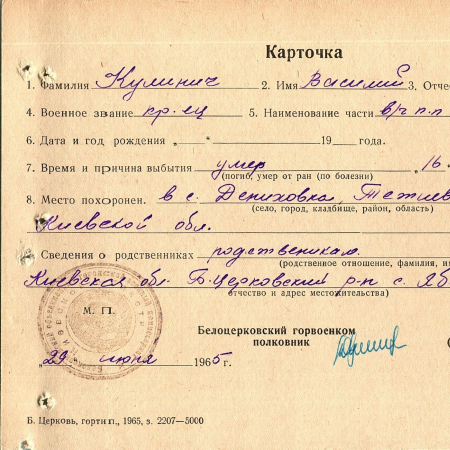 Карточка
1. Фамилия Кулинич 2. Имя Василий 3. Отче
4. Военное звание кр-ец 5. Наименование части в/ч п.п
6. Дата и год рождения „ “ 19 года.
7. Время и причина выбытия умер 16
(погиб, умер от ран (по болезни)
8. Место похоронен. в с. Дениховка, Тетиев
(село, город, кладбище, район, область)
Киевской обл.
Сведения о родственниках родственикам
(родственное отношение, фамилия, им
Киевская обл. Б-Церковский р-н с. Яб
отчество и адрес местожительства)
М. П.
Белоцерковский горвоенком
полковник
„29 июля 1965г.
Б. Церковь, гортип., 1965, з. 2207—5000